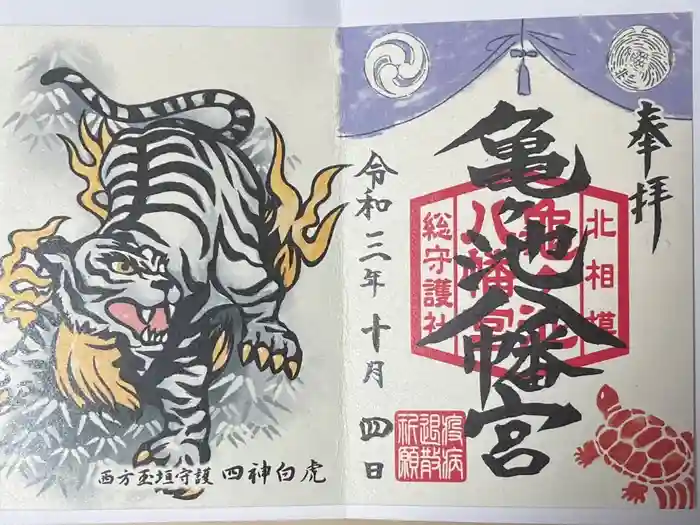 奉拝
亀ヶ池八幡宮
北相模
亀ヶ池
八幡宮
総守護社
令和三年十月四日
疫病
退散
祈願
西方玉垣守護 四神白虎